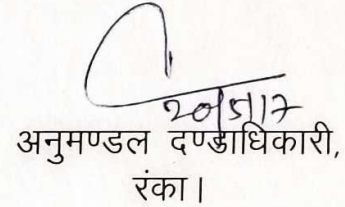 20/5/17
अनुमण्डल दण्डाधिकारी,
रंका।